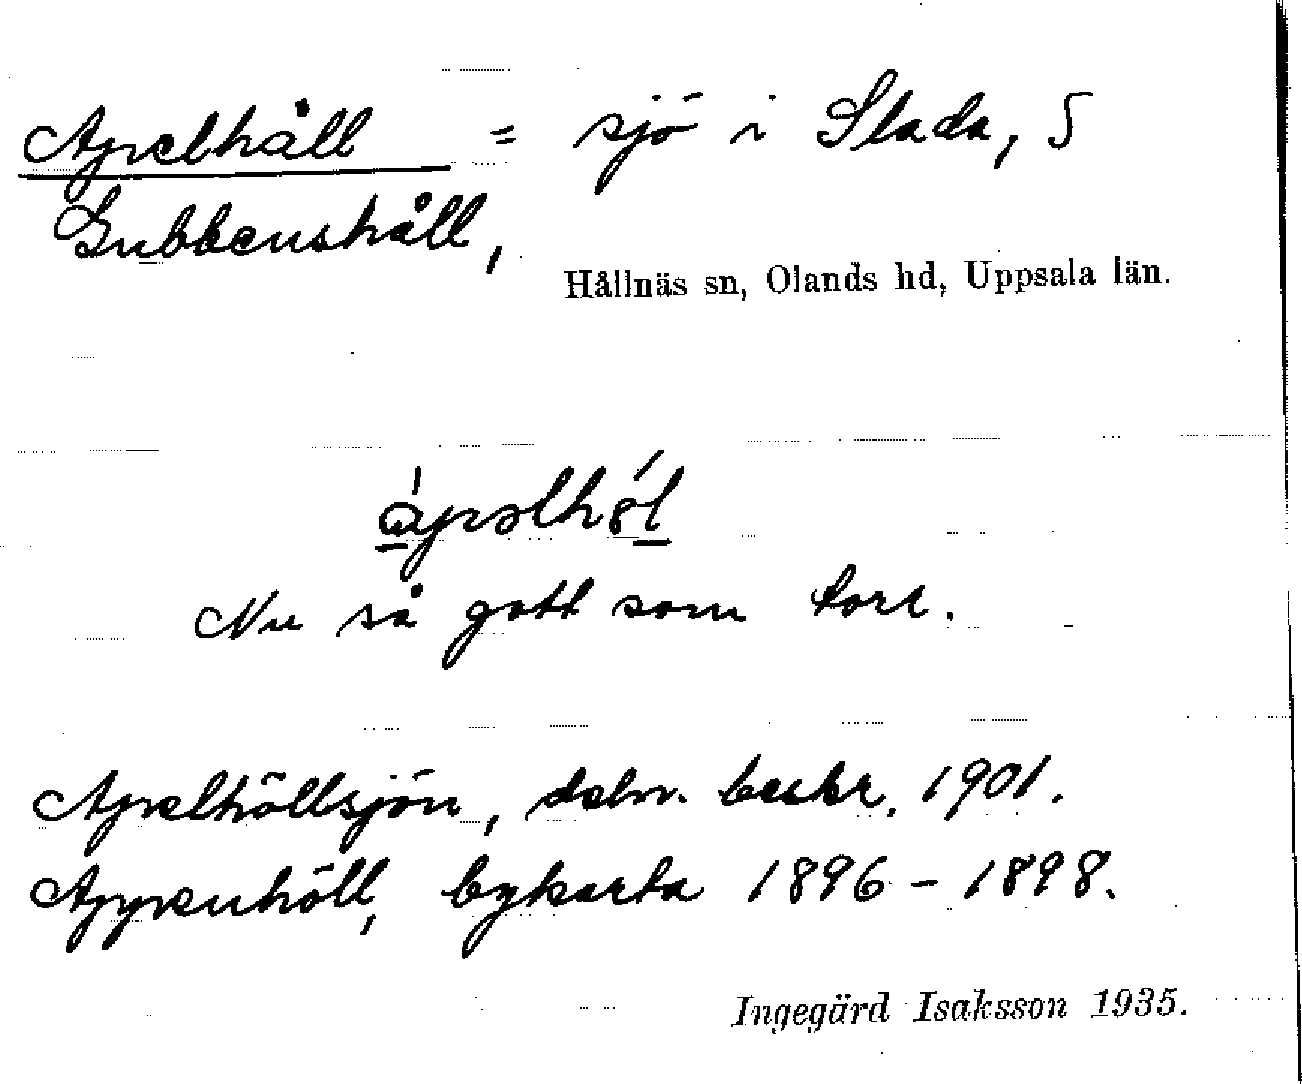 Apelhåll = sjö i Slada, S
Gubbenshåll,
Hållnäs sn, Olands hd, Uppsala län.
Nu så gott som torr.
Apelhöllsjön, deln. beskr. 1901.
Appenhöll, bykarta 1896-1898.
Ingegärd Isaksson 1935.